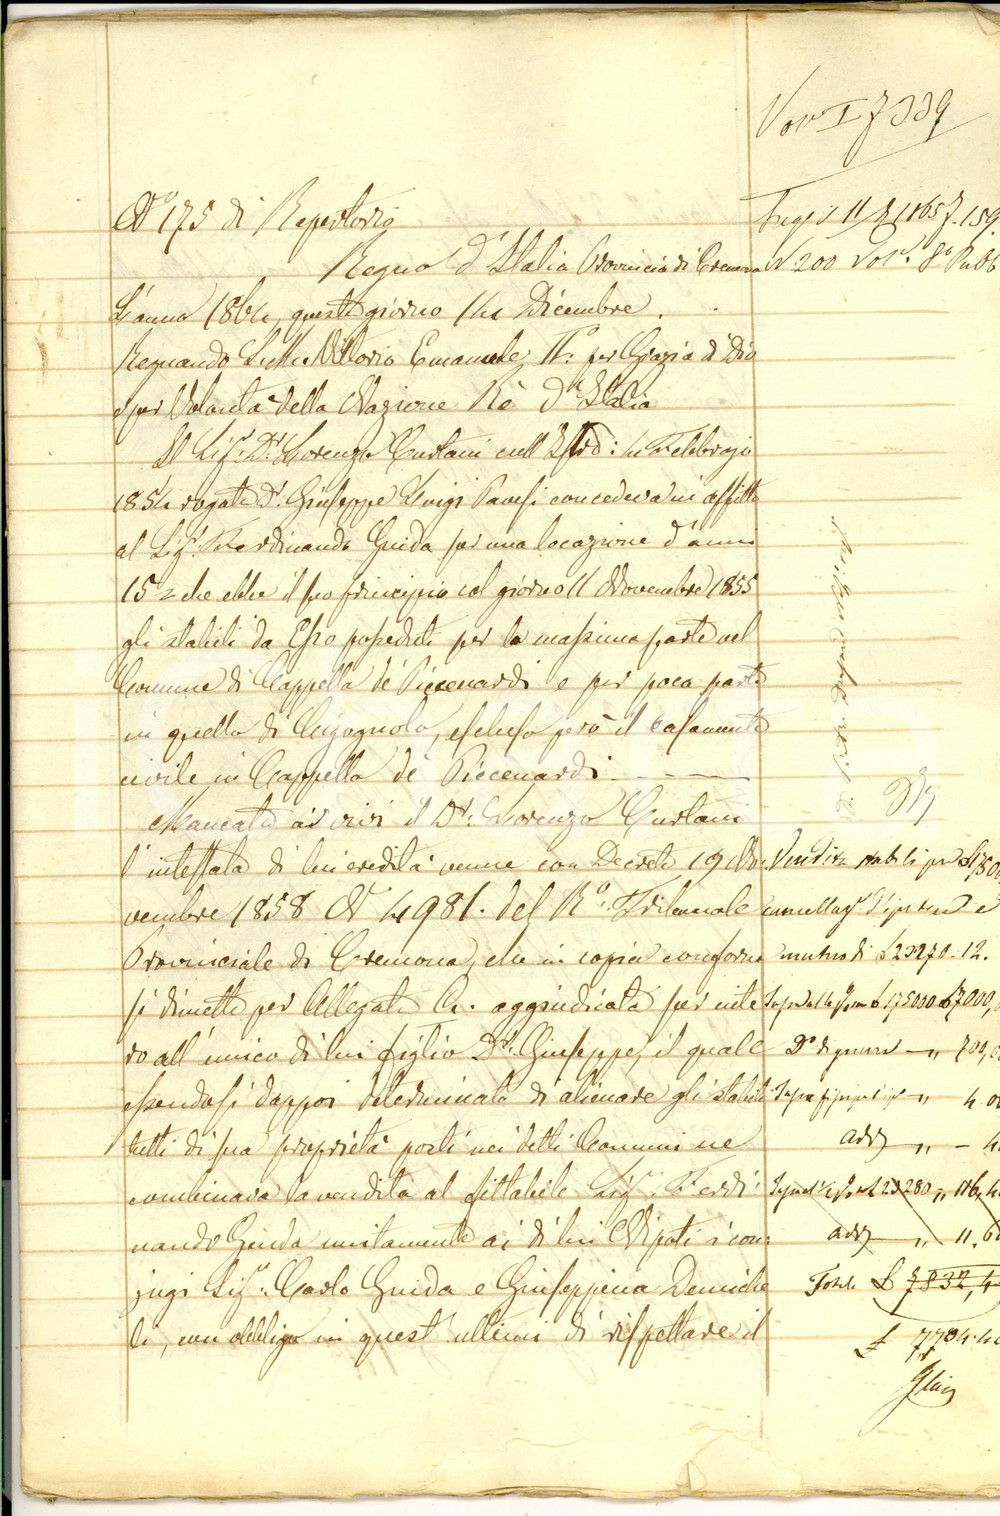 N.° 175 di Repertorio
Regno d'Italia Provincia di Cremona
L'anno 1864, questo giorno 14 Dicembre.
Regnando S. M. Vittorio Emanuele II.° per Grazia di Dio
e per Volontà della Nazione Rè d'Italia
Il Sig.r D.r Lorenzo Curtani coll' Istro: 4 Febbrajo
1854 rogato D.r Giuseppe Luigi Pavesi concedeva in affitto
al Sig.r Ferdinando Guida per una locazione d'anni
15 che ebbe il suo principio col giorno 11 Novembre 1855
gli stabili da Esso posseduti per la massima parte nel
Comune di Cappella de' Piccenardi e per poca parte
in quello di Cigognolo, escluso però il casamento
civile in Cappella de' Piccenardi.
Mancato ai vivi il D.r Lorenzo Curtani
l'intestata di lui eredità venne con Decreto 19 No-
vembre 1858 N.° 4981. del R.° Tribunale
Provinciale di Cremona, che in copia conforme
si dimette per Allegato A. aggiudicata per inte
ro all'unico di lui figlio D.r Giuseppe, il quale
essendosi dappoi determinato di alienare gli stabili
tutti di sua proprietà posti nei detti Comuni ne
combinava la vendita al fittabile Sig.r Ferdi-
nando Guida unitamente ai di lui Nipoti i con-
jugi Sig.r Carlo Guida e Giuseppina Demiche
li, con obbligo in quest'ultimi di rispettare il
Vol I f 339
N. 200 Vol.
Vendita stabili per
mutuo di £ 23270.12.
700,
4.
add
£ 23280 " 116,
add " 11.
Totale £ 7832,4
£ 7704.40